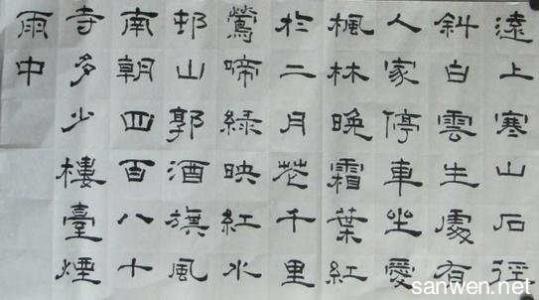 遠上寒山石徑
斜白雲生處有
人家停車坐愛
楓林晚霜葉紅
於二月花千里
鶯啼綠映紅水
邨山郭酒旗風
南朝四百八十
寺多少樓臺煙
雨中
sanwen.net